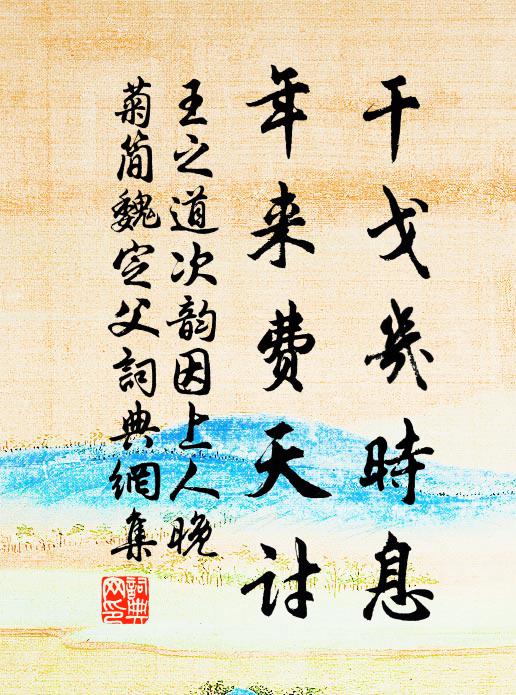 干戈幾時息
年來費天討
王之道次韵因上人晚
菊简魏定父詞典網集
詞典
网印